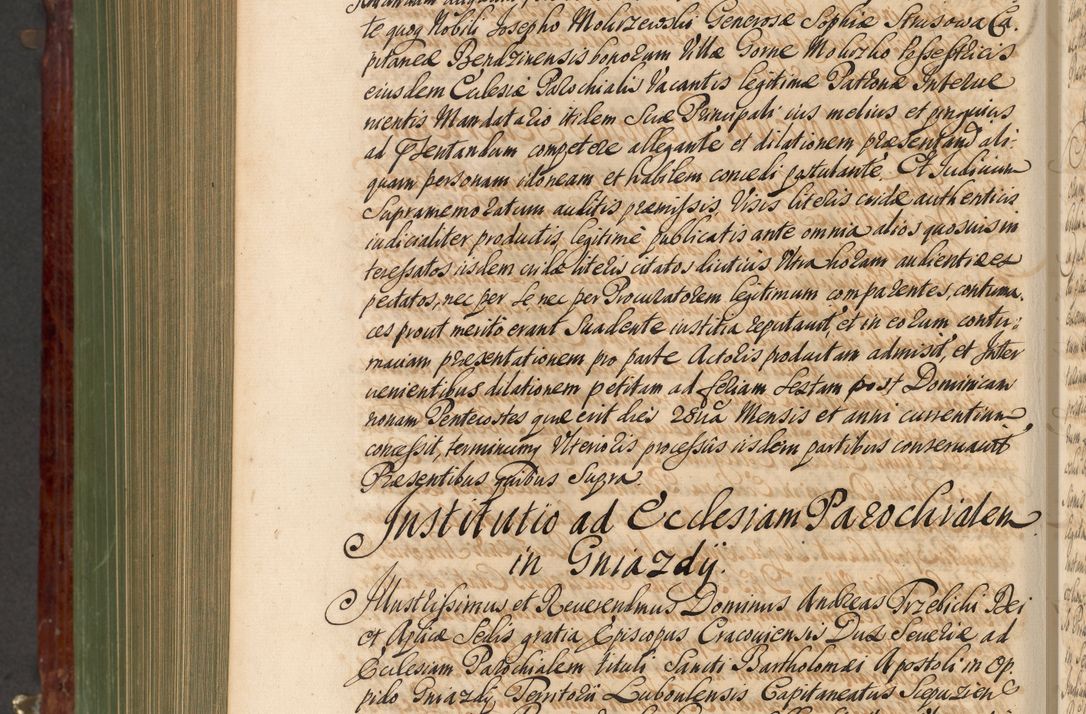 te quoq Nobili Josepho Mokrzewski Generosæ Sophiæ Strusowa Ca-
pitaneæ Bendzinensis bonorum Villæ Gorne Mokrzko Possestricis
eiusdem Ecclesiæ Parochialis Vacantis legitimæ Patronæ Interue
nientis Mandatario itidem Suæ Principali ius melius et
ad pſentandum competere allegante et dilationem præsentand ali-
quam personam idoneam et habilem concedi postulante. Et Judicium
Supramemoratum auditis præmissis Visis literis authenticis
iudicialiter productis, legitime publicatis ante omnia alios quosuis in
teressatos iisdem literis citatos diutius Vltra horam audientiæ ex
pectatos, nec per se nec per Procuratorem legitimum comparentes, contuma-
ces prout merito erant Suadente iustitia reputauit, et in eorum contu-
maciam præsentationem pro parte Actoris productam admisit, et Inter
uenientibus dilationem petitam ad feriam Sextam post Dominicam
nonam Pentecostes quæ erit dies Mensis et anni currentium
concessit, terminumq Vlterioris processus iisdem partibus conseruauit
Præsentibus quibus Supra.
Institutio ad Ecclesiam Parochialem
in Gniazdÿ.
Illustrissimus et Reuerendmus Dominus Andreas Trzebicki Dei
et Aplicæ Sedis gratia Episcopus Cracouiensis Dux Seueriæ ad
Ecclesiam Parochialem tituli Sancti Bartholomæi Apostoli in Op-
pido Gniazdÿ Territorii Luboulensis Capitaneatus Scepuzien